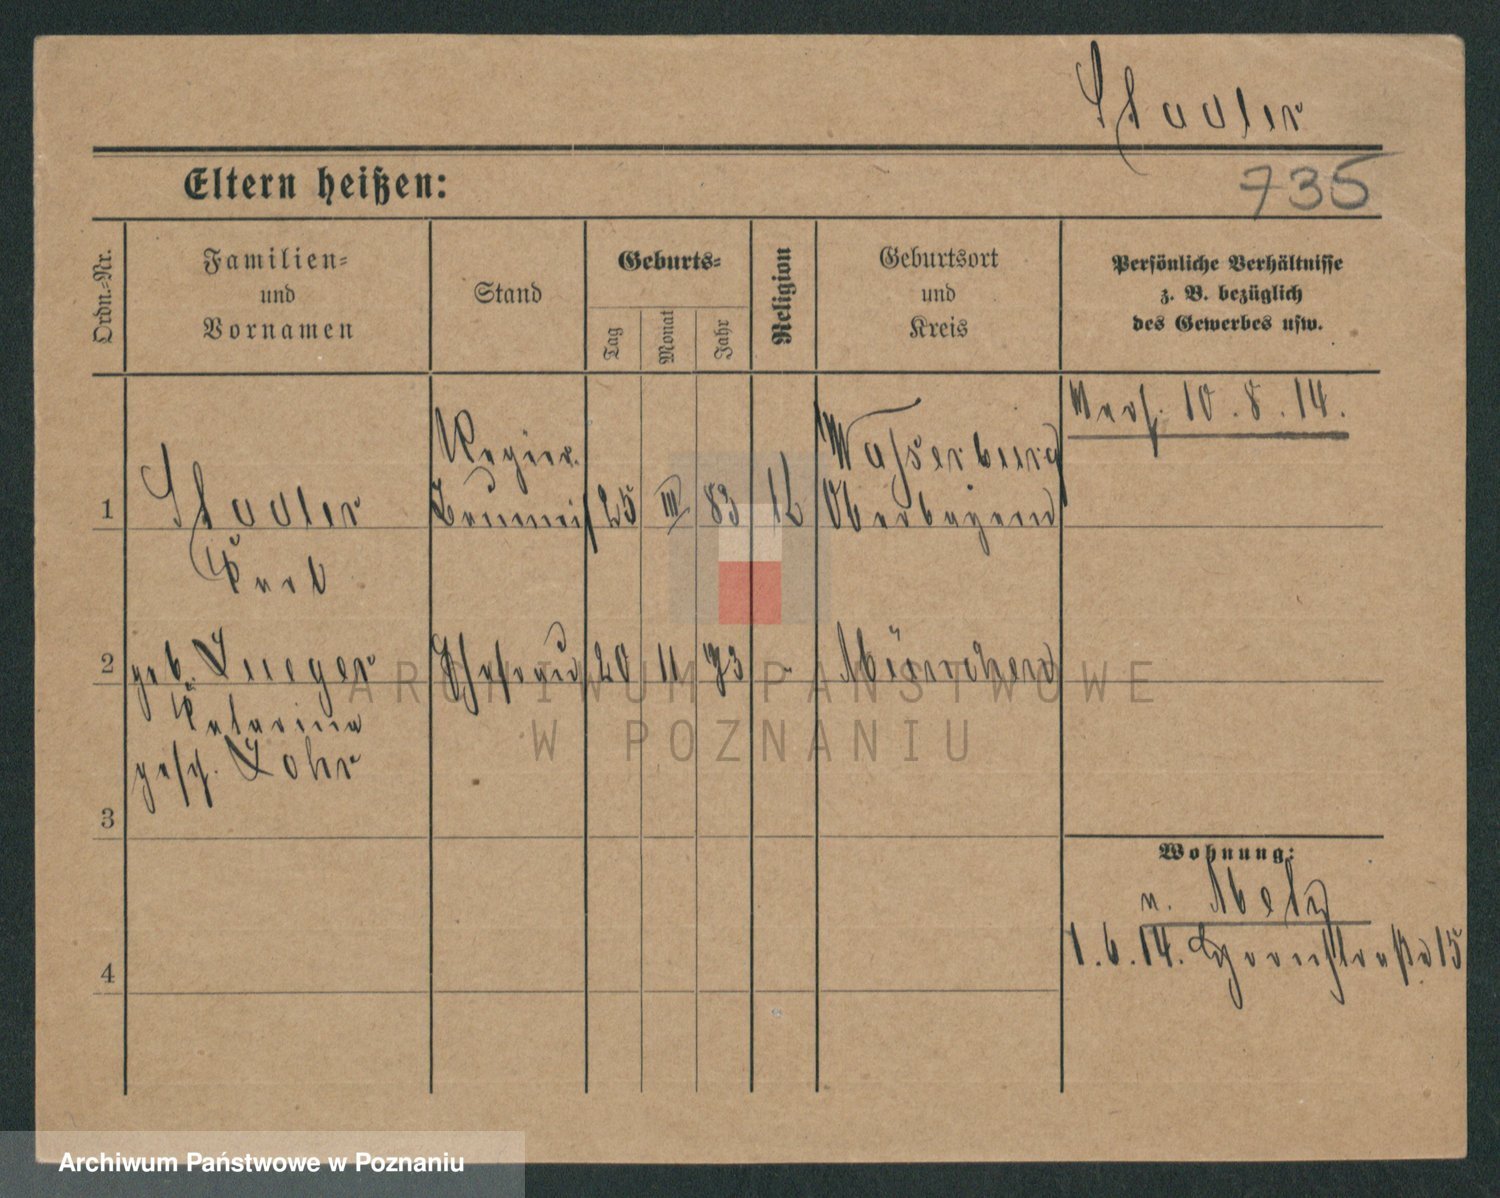 Stadler
Eltern heißen:
735
Ordn.-Nr.
Familien-
und
Vornamen
Stand
Geburts-
Tag
Monat
Jahr
Religion
Geburtsort
und
Kreis
Persönliche Verhältnisse
z. B. bezüglich
des Gewerbes usw.
1
Stadler
Karl
Regier.
Baumeist
25
III
83
k
Wasserburg
Oberbayern
10.8.14.
2
geb. Lueger
Katarina
gesch. Lohr
Ehefrau
20
11
73
-
München
3
4
Wohnung:
n. Metz
1.6.14.
15
ARCHIWUM PAŃSTWOWE
W POZNANIU
Archiwum Państwowe w Poznaniu